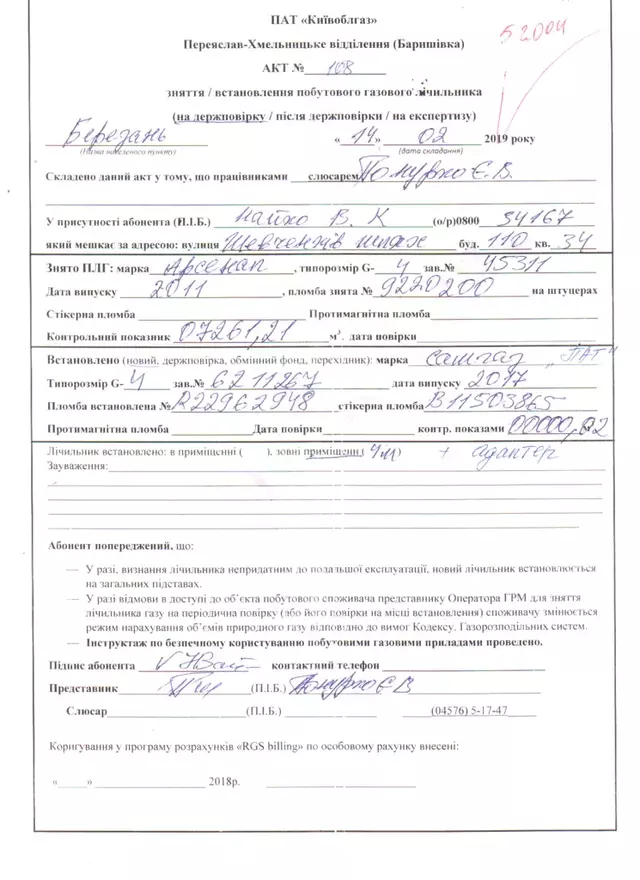 ПАТ «Київоблгаз»
52004
Переяслав-Хмельницьке відділення (Баришівка)
АКТ № 108
зняття / встановлення побутового газового лічильника
(на держповірку / після держповірки / на експертизу)
Березань «14» 02 2019 року
(Назва населеного пункту) (дата складання)
Складено даний акт у тому, що працівниками слюсарем Є.В.
У присутності абонента (П.І.Б.) В. К (о/р)0800 34167
який мешкає за адресою: вулиця Шевченків шлях буд. 110 кв. 34
Знято ПЛГ: марка Арсенал, типорозмір G- 4 зав.№ 45311
Дата випуску 2011, пломба знята № 9220200 на штуцерах
Стікерна пломба Протимагнітна пломба
Контрольний показник 07261,21 м³. дата повірки
Встановлено (новий, держповірка, обмінний фонд, перехідник): марка Самгаз „ПАТ"
Типорозмір G- 4 зав.№ 6211267 дата випуску 2017
Пломба встановлена № R22962948 стікерна пломба B11503865
Протимагнітна пломба Дата повірки контр. показами 00000,02
Лічильник встановлено: в приміщенні ( ), зовні приміщенн ( ) + адаптер
Зауваження:
Абонент попереджений, що:
— У разі, визнання лічильника непридатним до подальшої експлуатації, новий лічильник встановлюється
на загальних підставах.
— У разі відмови в доступі до об'єкта побутового споживача представнику Оператора ГРМ для зняття
лічильника газу на періодичну повірку (або його повірки на місці встановлення) споживачу змінюється
режим нарахування об'ємів природного газу відповідно до вимог Кодексу. Газорозподільних систем.
— Інструктаж по безпечному користуванню побутовими газовими приладами проведено.
Підпис абонента контактний телефон
Представник (П.І.Б.) Є В
Слюсар (П.І.Б.) (04576) 5-17-47
Коригування у програму розрахунків «RGS billing» по особовому рахунку внесені:
« » 2018р.